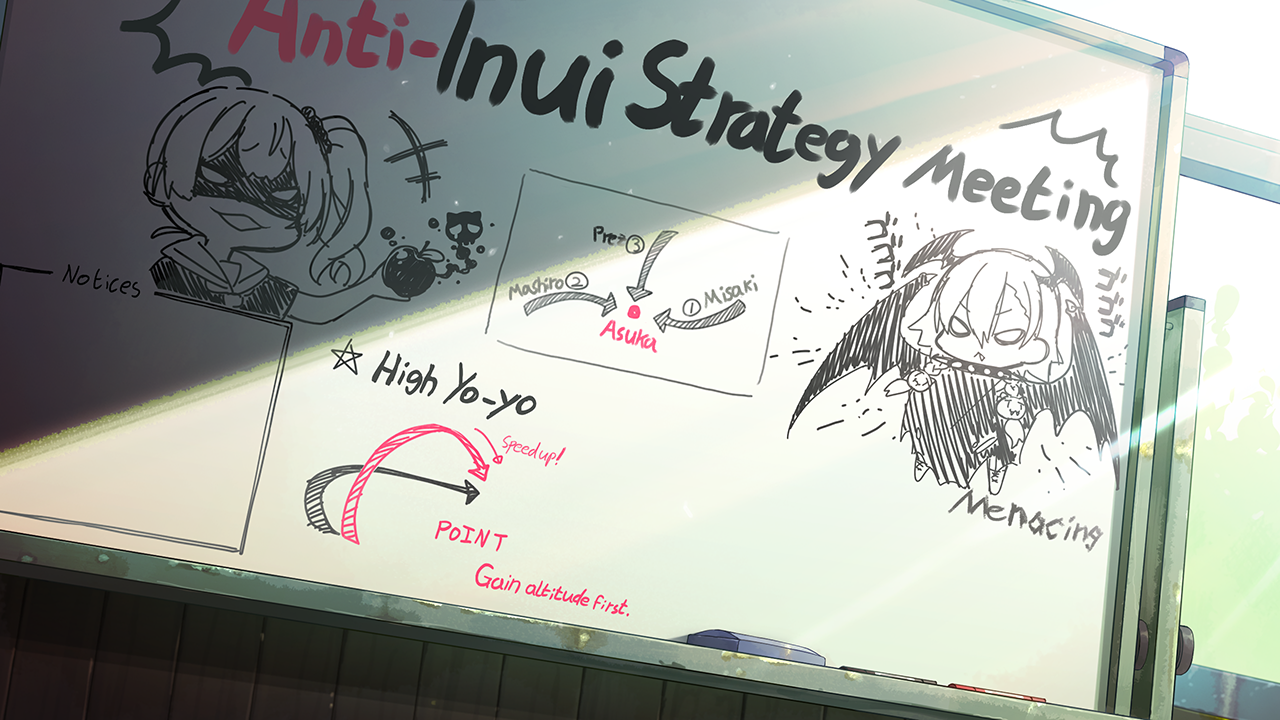 Anti-Inui Strategy Meeting
Notices
Prez③
Mashiro②
①Misaki
Asuka
☆ High Yo-yo
Speed up!
POINT
Gain altitude first.
Menacing